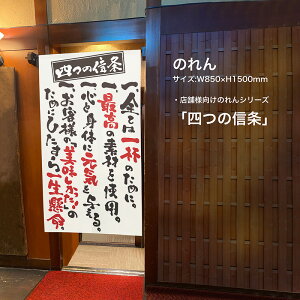 四つの信条
一、全ては一杯のために。
一、最高の素材を使用。
一、心と身体に元気を与える。
一、お客様の「美味しかった!」の
ためにひたすら一生懸命。
のれん
サイズ:W850×H1500mm
・店舗様向けのれんシリーズ
「四つの信条」